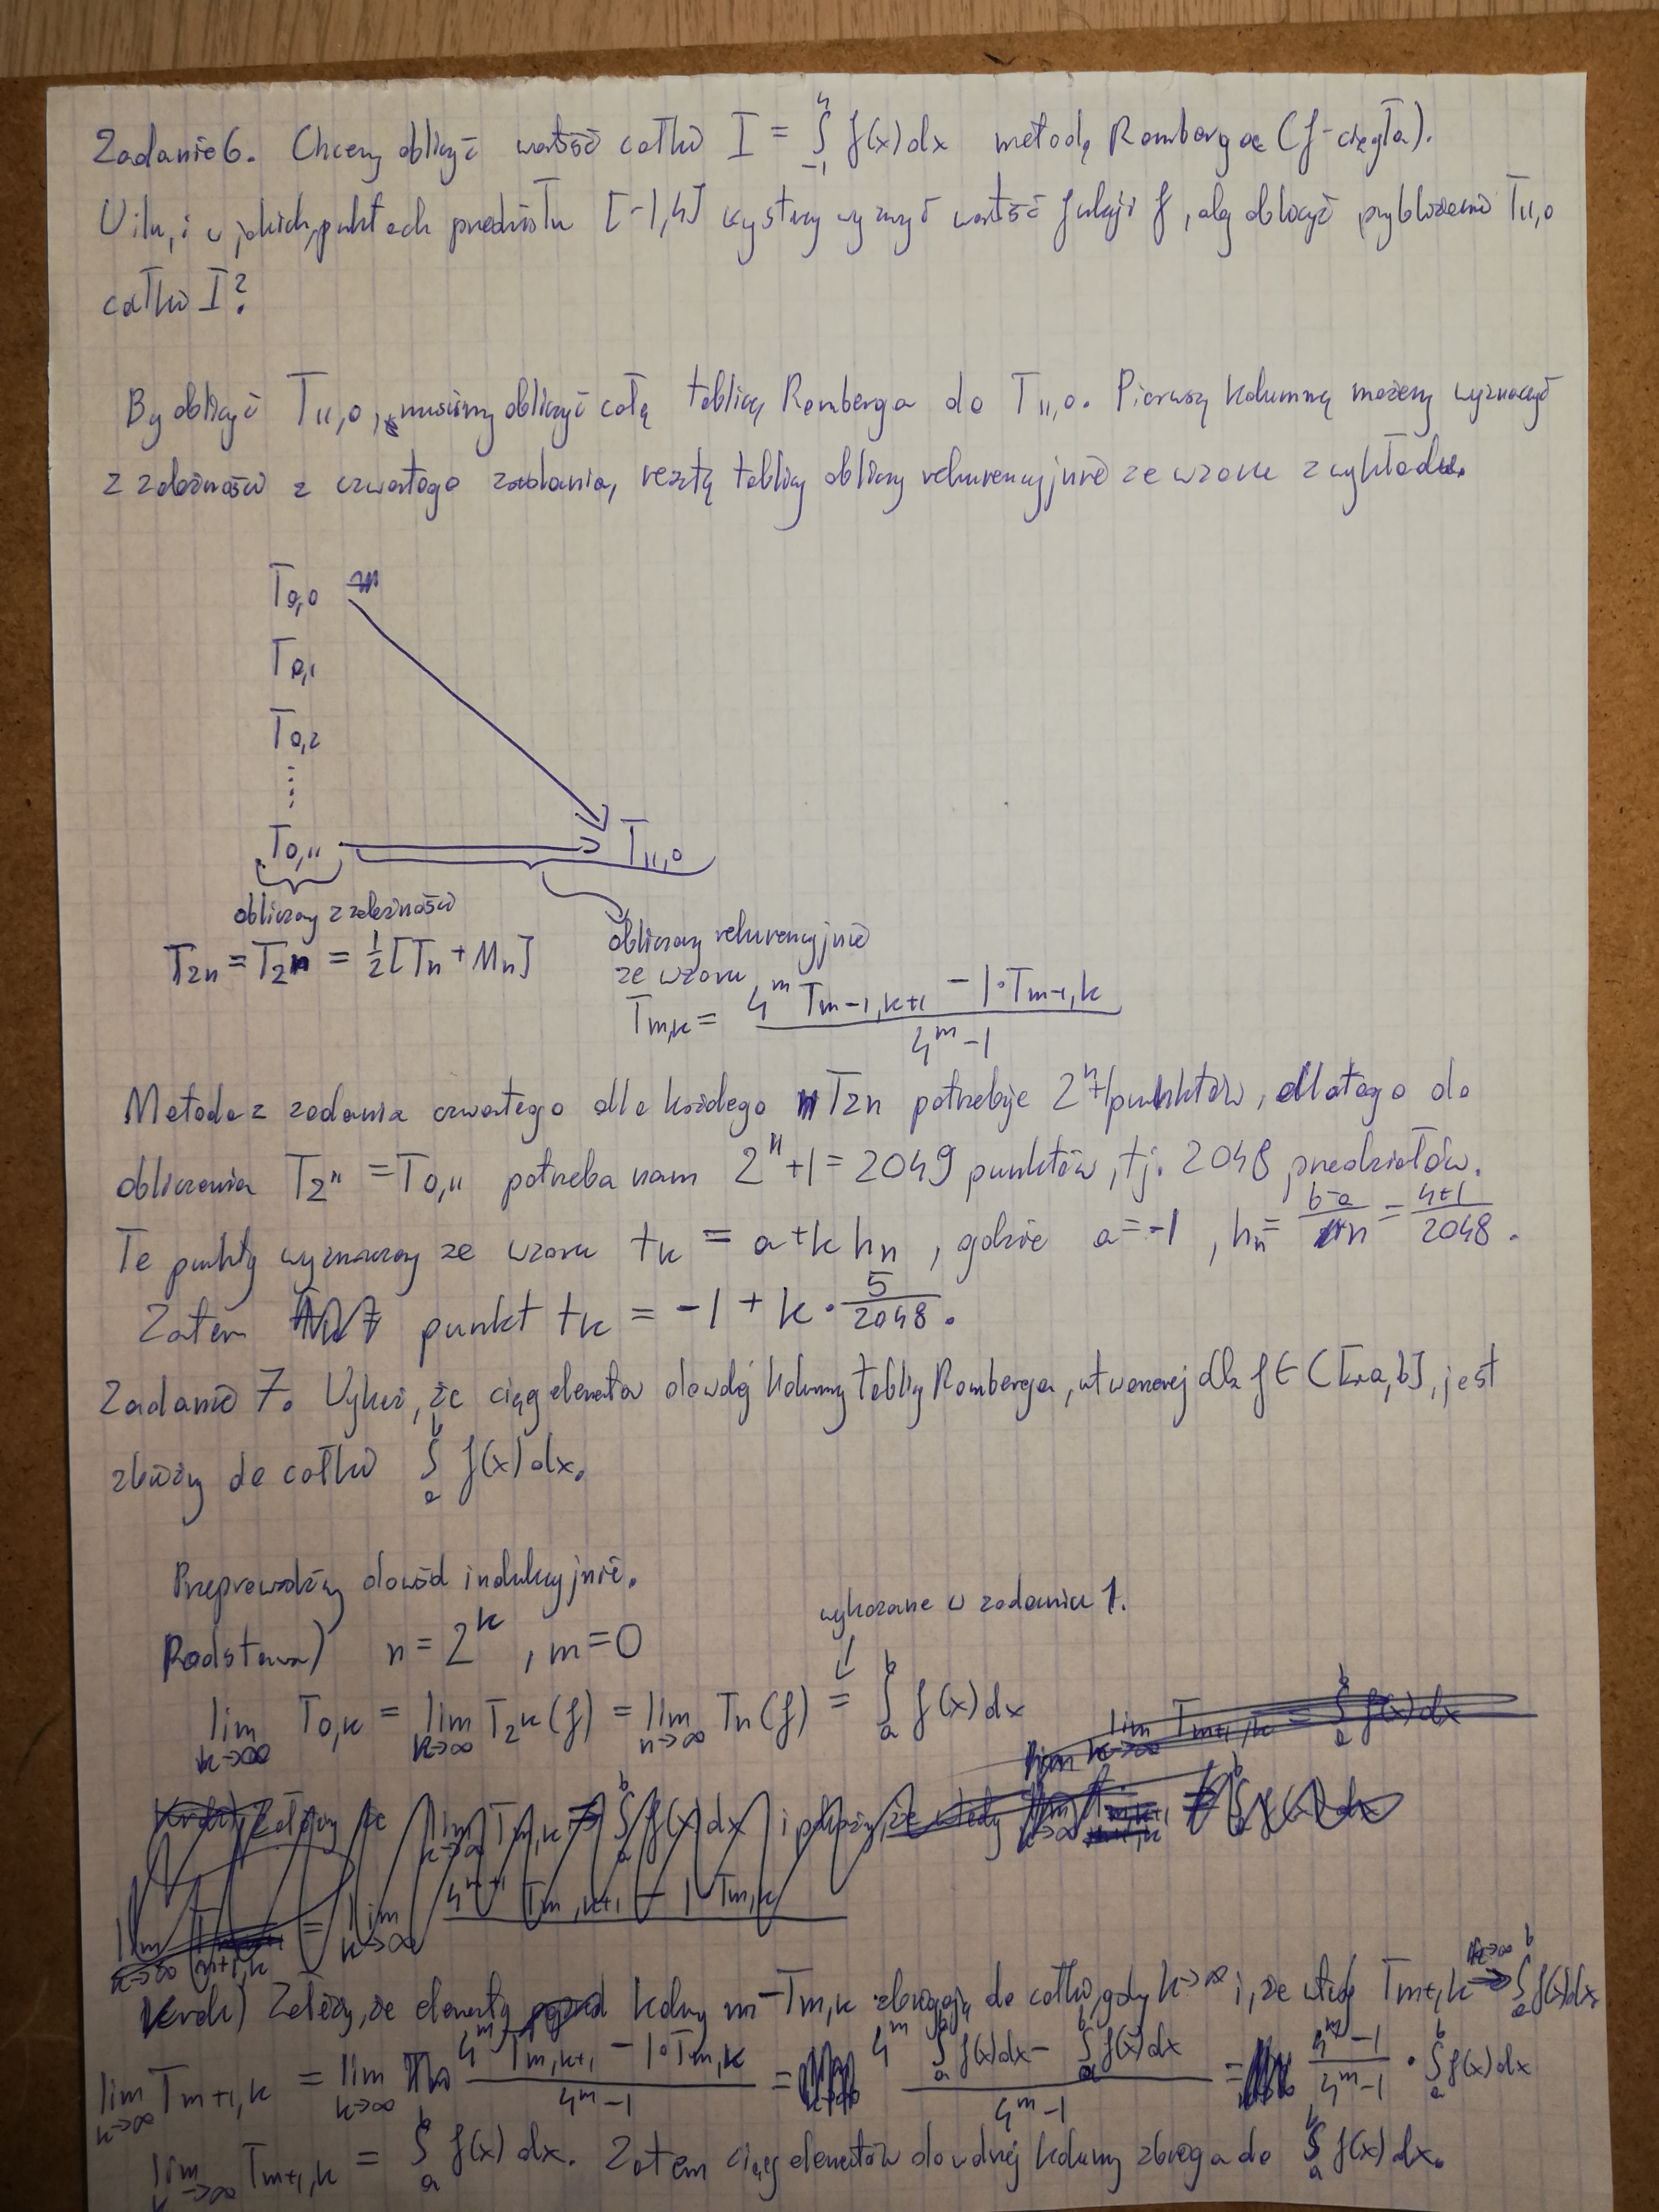 Zadanie 6. Chcemy obliczyć wartość całki I = ∫_{-1}^{4} f(x)dx metodą Romberga (f-ciągła).
W ilu, i w jakich, punktach przedziału [-1,4] wystarczy wyznaczyć wartość funkcji f, aby obliczyć przybliżenie T_{11,0}
całki I?
By obliczyć T_{11,0}, musimy obliczyć całą tablicę Romberga do T_{11,0}. Pierwszą kolumnę możemy wyznaczyć
z zależności z czwartego zadania, resztę tablicy obliczmy rekurencyjnie ze wzoru z wykładu.
T_{0,0}
T_{0,1}
T_{0,2}
⋮
T_{0,11} T_{11,0}
obliczamy z zależności
T_{2n} = T_{2n} = 1/2 [T_n + M_n]
obliczamy rekurencyjnie
ze wzoru
T_{m,k} = (4^m T_{m-1,k+1} - 1·T_{m-1,k}) / (4^m - 1)
Metoda z zadania czwartego dla każdego T_{2n} potrzebuje 2^n+1 punktów, dlatego do
obliczenia T_{2^{11}} = T_{0,11} potrzeba nam 2^{11}+1 = 2049 punktów, tj. 2048 przedziałów.
Te punkty wyznaczamy ze wzoru t_k = a + k h_n, gdzie a = -1, h_n = (b-a)/n = (4+1)/2048.
Zatem punkt t_k = -1 + k · 5/2048.
Zadanie 7. Wykaż, że ciąg elementów dowolnej kolumny tablicy Romberga, utworzonej dla f ∈ C[a,b], jest
zbieżny do całki ∫_a^b f(x)dx.
Przeprowadźmy dowód indukcyjnie.
wykazane w zadaniu 1.
Podstawa) n = 2^k, m = 0
lim_{k→∞} T_{0,k} = lim_{k→∞} T_{2^k}(f) = lim_{n→∞} T_n(f) = ∫_a^b f(x)dx
Krok) Załóżmy, że elementy kolumny m - T_{m,k} zbiegają do całki, gdy k→∞ i, że wtedy T_{m+1,k} →^{k→∞} ∫_a^b f(x)dx
lim_{k→∞} T_{m+1,k} = lim_{k→∞} (4^m T_{m,k+1} - 1·T_{m,k}) / (4^m - 1) = (4^m ∫_a^b f(x)dx - ∫_a^b f(x)dx) / (4^m - 1) = (4^m - 1)/(4^m - 1) · ∫_a^b f(x)dx
lim_{k→∞} T_{m+1,k} = ∫_a^b f(x)dx. Zatem ciąg elementów dowolnej kolumny zbiega do ∫_a^b f(x)dx.